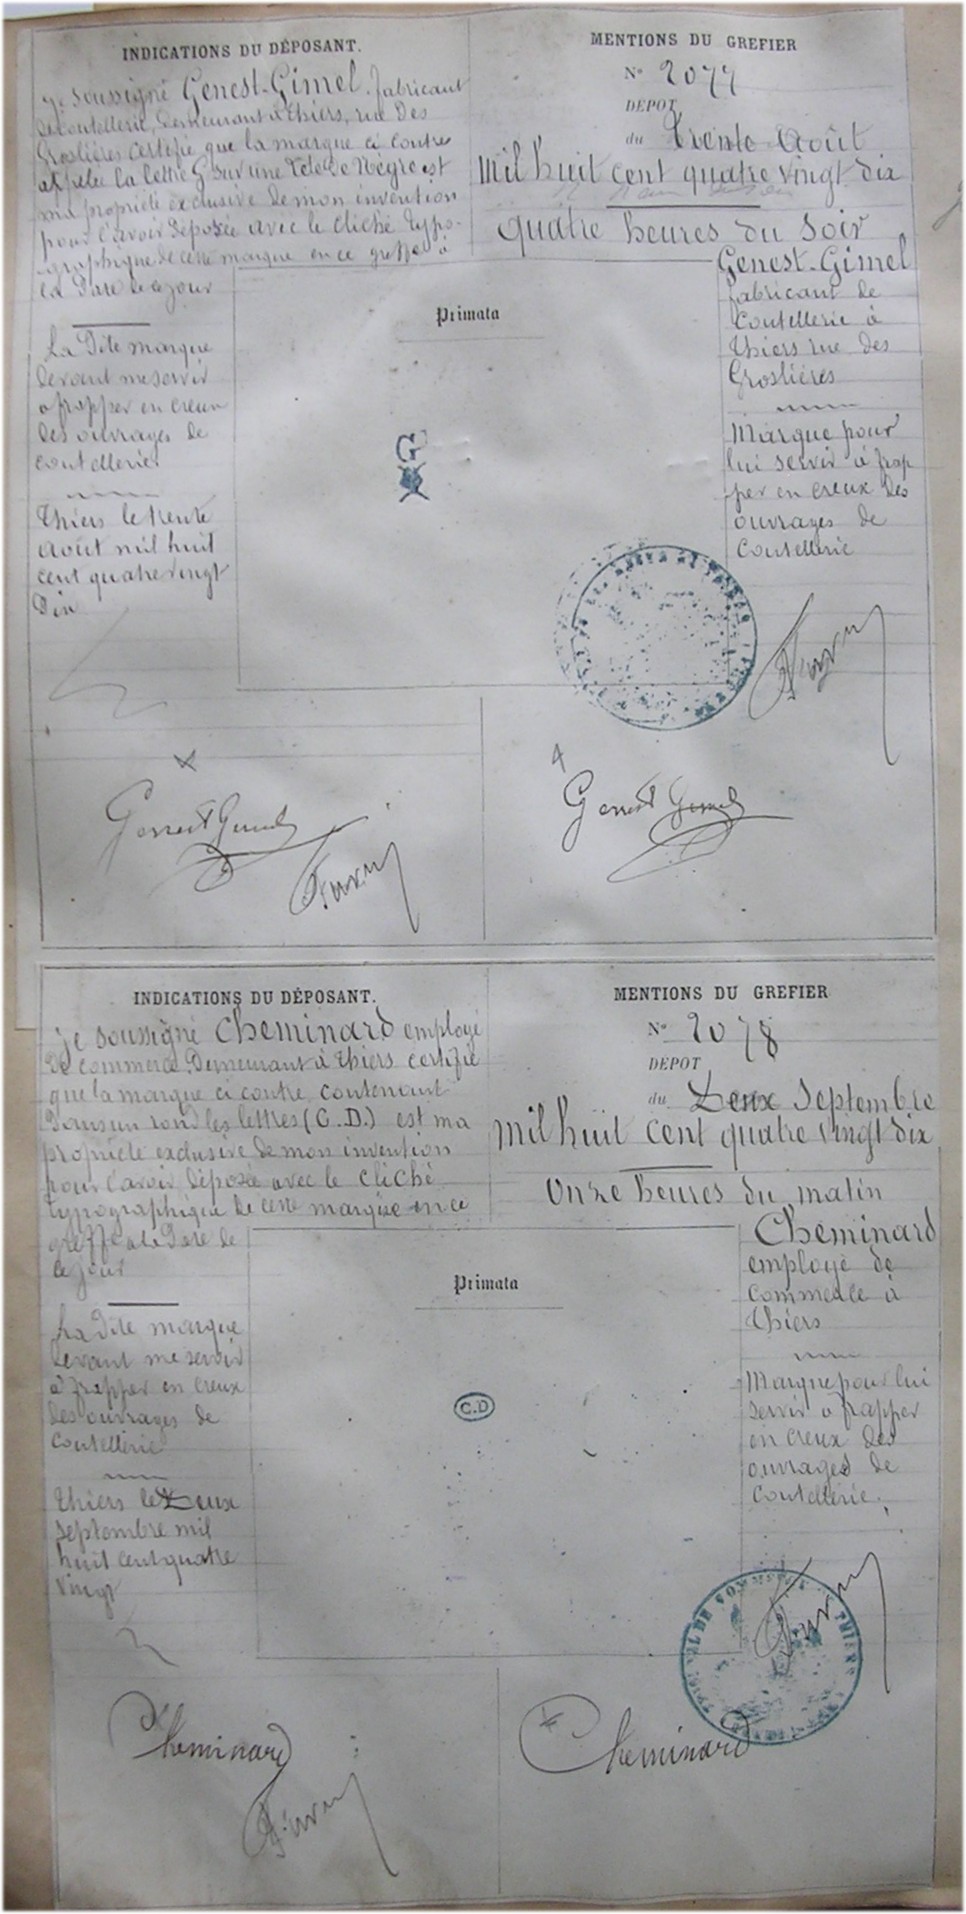 INDICATIONS DU DÉPOSANT.
je soussigné Genest-Gimel, fabricant
de coutellerie, demeurant à Thiers, rue des
Groslières certifie que la marque ci contre
appelée la lettre G sur une Tête de Nègre est
ma propriété exclusive de mon invention
pour l'avoir déposée avec le cliché typo-
graphique de cette marque en ce greffe à
la Date de ce jour
La Dite marque
devant me servir
à frapper en creux
des ouvrages de
coutellerie
Thiers le trente
août mil huit
cent quatre vingt
Dix
MENTIONS DU GREFIER
N° 2077
DÉPOT
du Trente Août
Mil huit cent quatre vingt dix
quatre heures du soir
Genest-Gimel
fabricant de
coutellerie à
Thiers rue des
Groslières
Marque pour
lui servir à frap
per en creux des
ouvrages de
coutellerie
Primata
G
Genest Gimel
Genest Gimel
INDICATIONS DU DÉPOSANT.
je soussigné Cheminard employé
de commerce Demeurant à Thiers certifie
que la marque ci contre, contenant
Dans un rond les lettres (C.D.) est ma
propriété exclusive de mon invention
pour l'avoir déposée avec le cliché
typographique de cette marque en ce
greffe à la Date de
ce jour
La Dite marque
devant me servir
à frapper en creux
des ouvrages de
coutellerie
Thiers le Deux
septembre mil
huit cent quatre
vingt
MENTIONS DU GREFIER
N° 2078
DÉPOT
du Deux Septembre
Mil huit cent quatre vingt dix
Onze heures du matin
Cheminard
employé de
commerce à
Thiers
Marque pour lui
servir à frapper
en creux des
ouvrages de
coutellerie.
Primata
C.D
DE COMMERCE THIERS
Cheminard
Cheminard